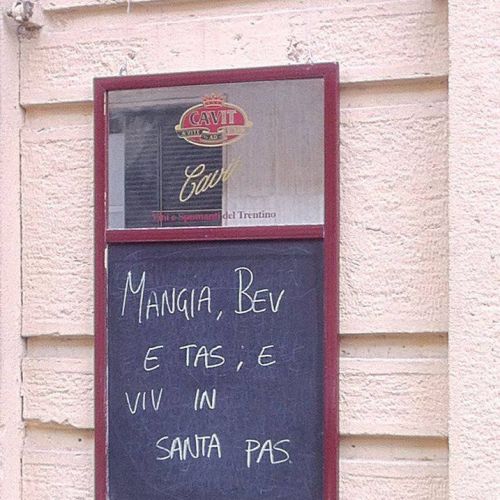 CAVIT
Cavit
Vini e Spumanti del Trentino
MANGIA, BEV
E TAS; E
VIV IN
SANTA PAS.